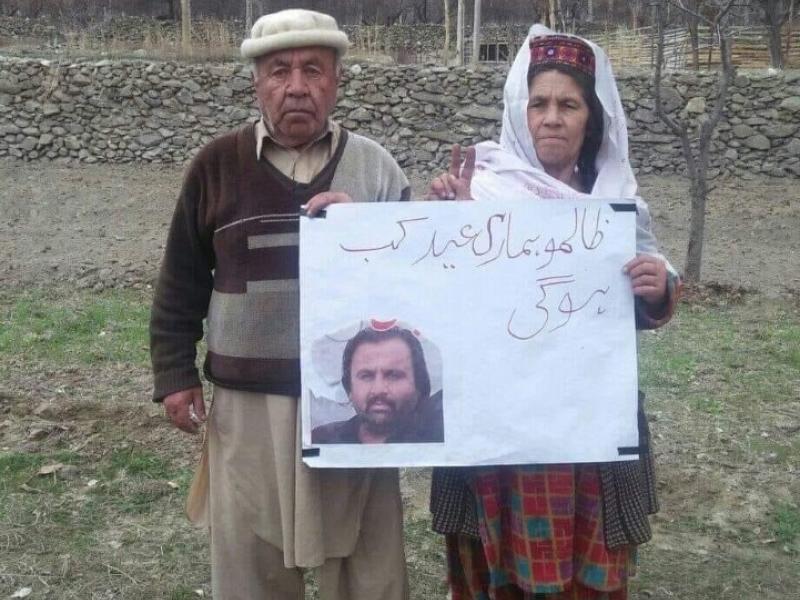 ظالمو ہماری عید کب
ہوگی